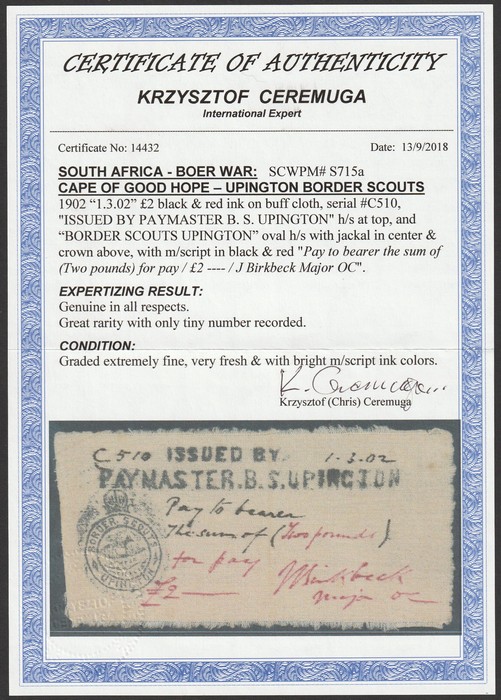 CERTIFICATE OF AUTHENTICITY
KRZYSZTOF CEREMUGA
International Expert
Certificate No: 14432 Date: 13/9/2018
SOUTH AFRICA - BOER WAR: SCWPM# S715a
CAPE OF GOOD HOPE – UPINGTON BORDER SCOUTS
1902 “1.3.02” £2 black & red ink on buff cloth, serial #C510,
"ISSUED BY PAYMASTER B. S. UPINGTON" h/s at top, and
“BORDER SCOUTS UPINGTON” oval h/s with jackal in center &
crown above, with m/script in black & red "Pay to bearer the sum of
(Two pounds) for pay / £2 ---- / J Birkbeck Major OC".
EXPERTIZING RESULT:
Genuine in all respects.
Great rarity with only tiny number recorded.
CONDITION:
Graded extremely fine, very fresh & with bright m/script ink colors.
K. Ceremuga
Krzysztof (Chris) Ceremuga
C510 ISSUED BY 1-3.02
PAYMASTER.B.S.UPINGTON
Pay to bearer
BORDER SCOUTS
The sum of (Two pounds)
for pay
UPINGTON
£2 JBirkbeck
Major OC